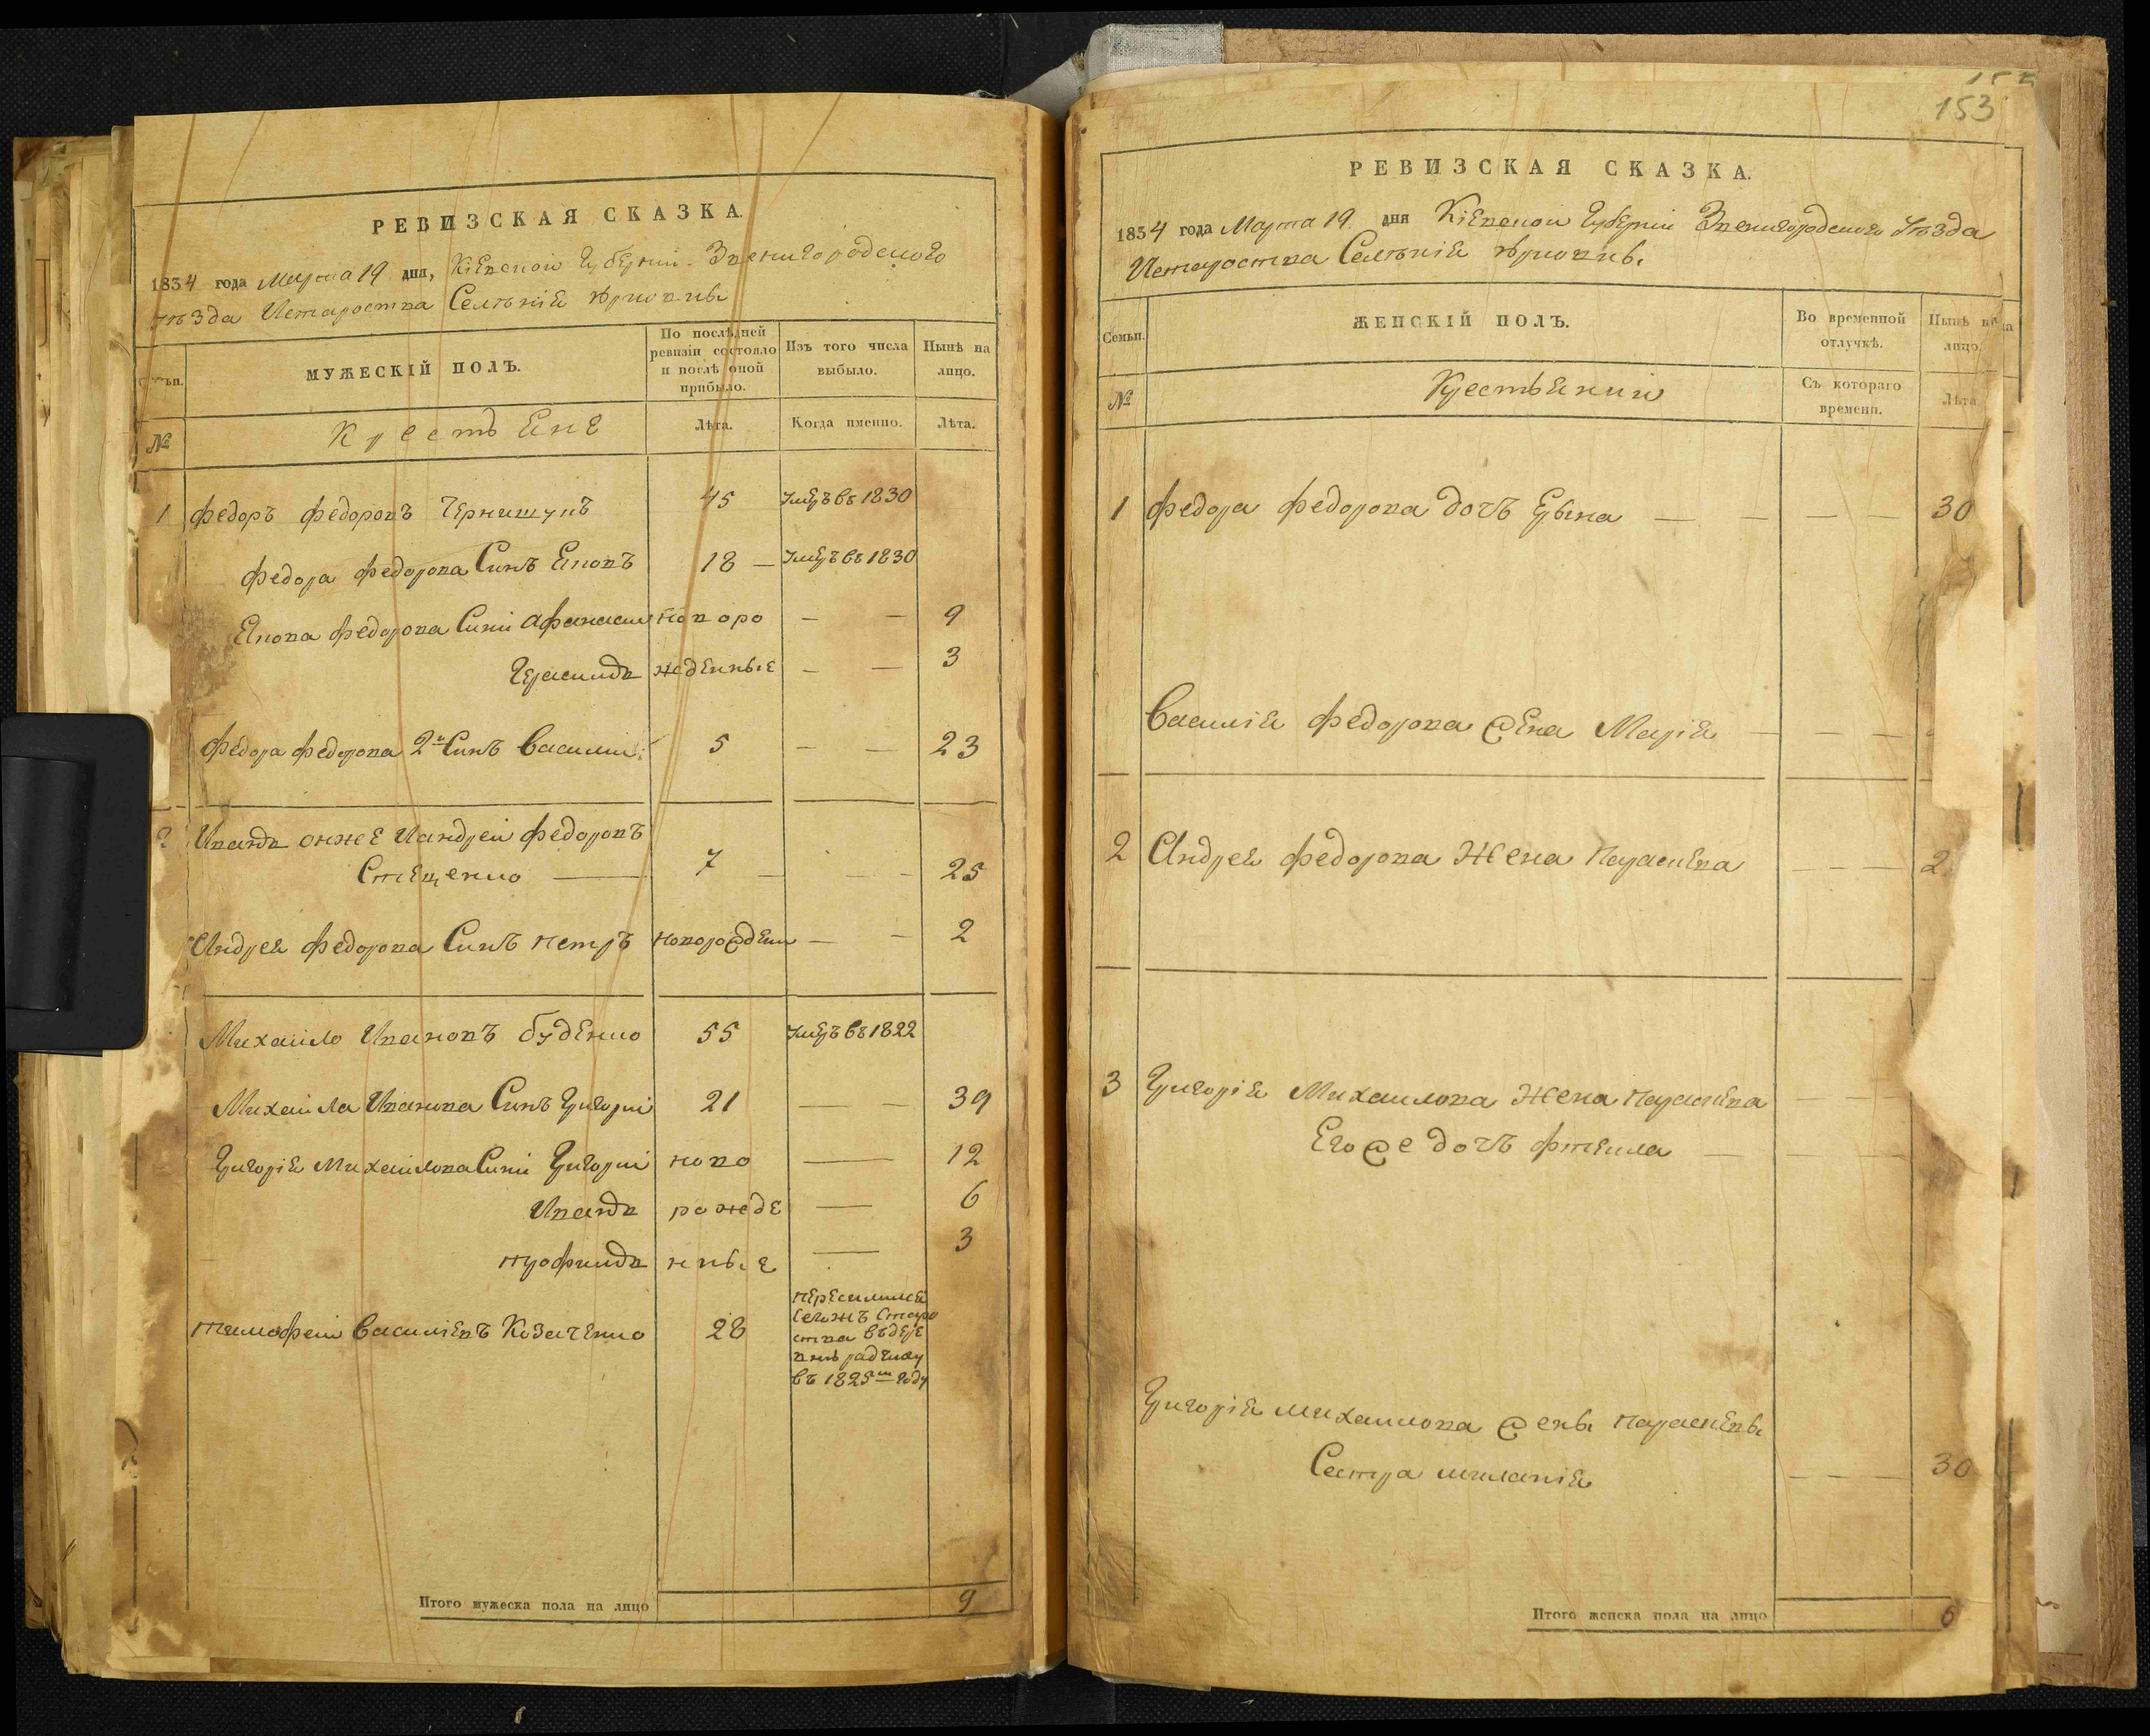 РЕВИЗСКАЯ СКАЗКА.
1834 года Марта 19 дня, Кіевской Губерніи Звенигородского
уѣзда Истаростка Селѣніе
МУЖЕСКІЙ ПОЛЪ.
По послѣдней
ревизіи состояло
и послѣ оной
прибыло.
Изъ того числа
выбыло.
Нынѣ на
лицо.
№
Крестьяне
Лѣта.
Когда именно.
Лѣта.
1 Федоръ Федоровъ 45 Умеръ въ 1830
Федора Федорова Синъ Яковъ 18 — Умеръ въ 1830
Якова Федорова Сини Афанаси новоро — — 9
Герасимъ жденные — — 3
Федора Федорова 2й Синъ Василий 5 — — 23
2 Иванъ онже Иандрей Федоровъ
Стеценко — 7 — — - 25
Андрея Федорова Синъ Петръ новорожден — - 2
Михайло Ивановъ Буденко 55 Умеръ въ 1822
Михайла Иванова Синъ Григорий 21 — — 39
Григорія Михайлова Сини Григорий ново — 12
Иванъ рожде — 6
Трофимъ нные — 3
Тимофей Василіевъ Козаченко 28
въ 1825м году
Итого мужеска пола на лицо 9
153
РЕВИЗСКАЯ СКАЗКА.
1834 года Марта 19 дня Кіевской Губерніи Звенигородского Уѣзда
Истаростка Селѣніе
Семьи.
ЖЕНСКІЙ ПОЛЪ.
Во временной
отлучкѣ.
Нынѣ на
лицо.
№
Съ котораго
времени.
Лѣта
1 Федора Федорова дочъ — — — — 30
Василія Федорова жена Марія — — —
2 Андрея Федорова жена Параскева — — — 2
3 Григорія Михайлова жена Параскева — —
Егоже дочъ — — —
Григорія Михайлова жены Параскевы
Сестра — — — 30
Итого женска пола на лицо 6